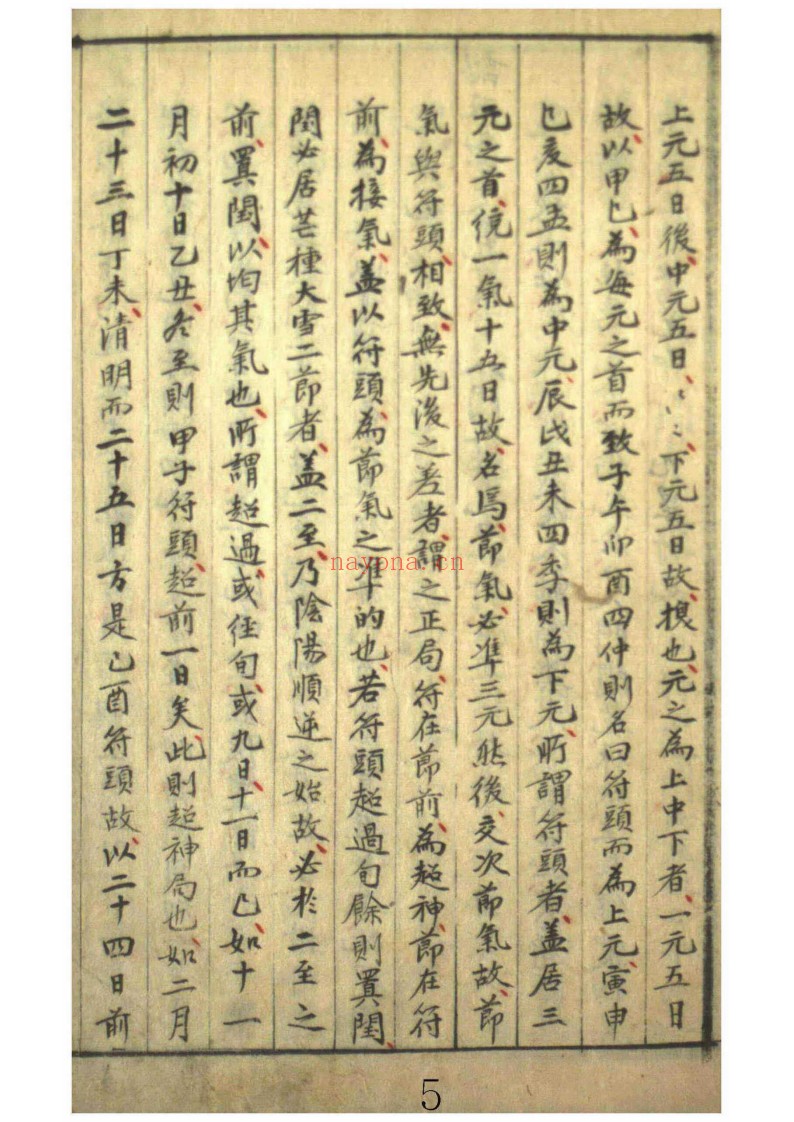 上元五日後、中元五日、㆑㆓、下元五日故、換也、元之為上中下者、一元五日
故、以甲己、為每元之首而致子午卯酉四仲則名曰符頭而為上元、寅申
巳亥四孟則為中元、辰戌丑未四季則為下元、所謂符頭者、盖居三
元之首、統一氣十五日故、名焉、節氣、必準三元然後、交次節氣故、節
氣與符頭、相致、無先後之差者、謂之正局、符在節前、為超神、節在符
前、為接氣、盖以符頭、為節氣之準的也、若符頭超過旬餘則置閏、
閏必居芒種大雪二節者、盖二至、乃陰陽順逆之始故、必於二至之
前、置閏、以均其氣也、所謂超過、或徑旬、或九日、十一日而已、如十一
月初十日乙丑、冬至則甲子符頭、超前一日矣、此則超神局也、如二月
二十三日丁未、清明而二十五日方是己酉符頭故、以二十四日前
nayona.cn
5